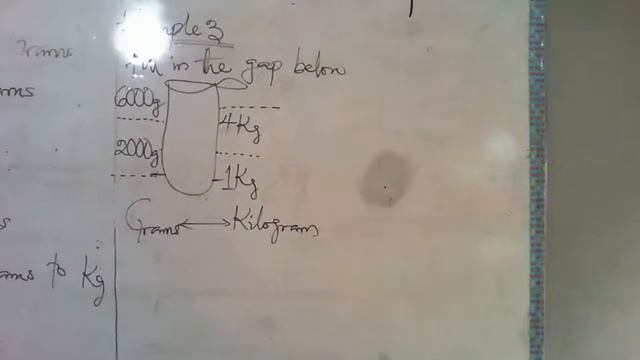 Grams
ams
ams to Kg
Example 3
Fill in the gap below
6000g
4Kg
2000g
1Kg
Grams Kilogram